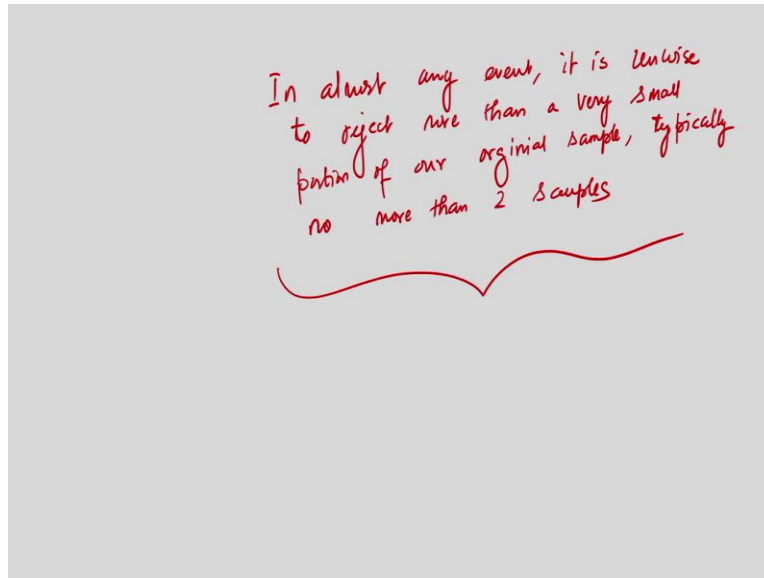 In almost any event, it is unwise
to reject more than a very small
portion of our orginial sample, typically
no more than 2 samples